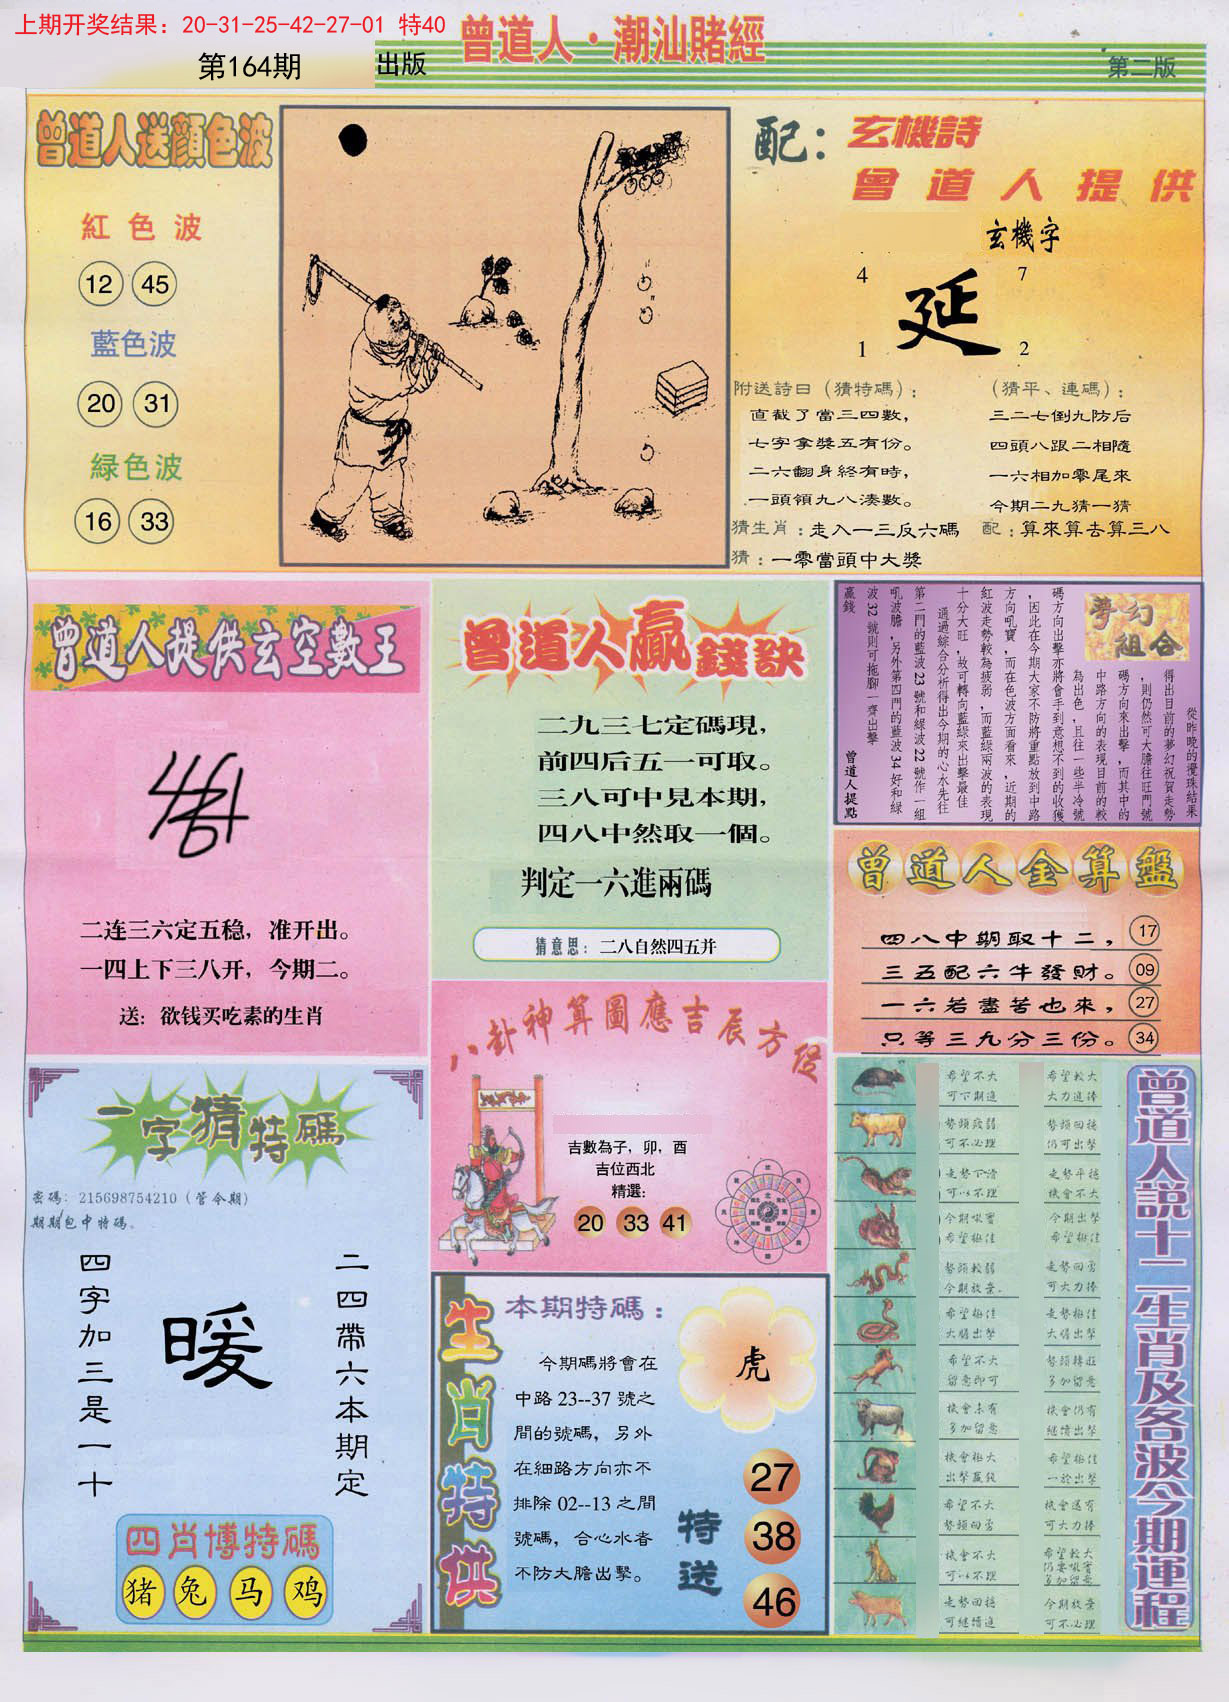 上期开奖结果：20-31-25-42-27-01 特40
曾道人·潮汕賭經
第164期
出版
第二版
曾道人送顏色波
紅色波
12 45
藍色波
20 31
緑色波
16 33
配：玄機詩
曾道人提供
玄機字
4 7
延
1 2
附送詩曰（猜特碼）：
直截了當三四數，
七字拿獎五有份。
二六翻身終有時，
一頭領九八湊數。
（猜平、連碼）：
三二七倒九防后
四頭八跟二相隨
一六相加零尾來
今期二九猜一猜
猜生肖：走入一三反六碼
配：算來算去算三八
猜：一零當頭中大獎
曾道人提供玄空數王
二连三六定五稳，准开出。
一四上下三八开，今期二。
送：欲钱买吃素的生肖
曾道人贏錢訣
二九三七定碼現，
前四后五一可取。
三八可中見本期，
四八中然取一個。
判定一六進兩碼
猜意思：二八自然四五并
夢幻組合
從昨晚的攪珠結果
得出目前的夢幻祝賀走勢
，則仍然可大膽往旺門號
碼方向來出擊，而其中的
中路方向的表現目前的較
為出色，且往一些半冷號
碼方向出擊亦將會手到意想不到的收獲
，因此在今期大家不防將重點放到中路
方向吼寶，而在色波方面看來，近期的
紅波走勢較為疲弱，而藍綠兩波的表現
十分大旺，故可轉向藍綠來出擊最佳
通過綜合分析得出今期的心水先往
第二門的藍波23號和綠波22號作一組
吼波膽，另外第四門的藍波34好和綠
波32號則可拖腳一齊出擊
贏錢
曾道人提點
曾道人金算盤
四八中期取十二， 17
三五配六牛發財。 09
一六若盡苦也來， 27
只等三九分三份。 34
八卦神算圖應吉辰方位
吉數為子，卯，酉
吉位西北
精選:
20 33 41
一字猜特碼
密碼：215698754210（管今期）
期期包中特碼。
四字加三是一十
暖
二四帶六本期定
四肖博特碼
猪 兔 马 鸡
生肖特供
本期特碼：
今期碼將會在
中路23--37號之
間的號碼，另外
在細路方向亦不
排除02--13之間
號碼，合心水者
不防大膽出擊。
虎
特送
27
38
46
曾道人説十二生肖及各波今期運程
希望不大
可下期進
希望較大
大力進捧
勢頭疲弱
可不必理
勢頭回穩
仍可出擊
走勢下滑
可以不理
走勢平穩
機會不大
今期吼寶
希望極佳
今期出擊
希望極佳
勢頭較弱
今期放棄。
走勢回勇
可大力捧
希望極佳
大膽出擊
走勢極佳
大膽出擊
希望不大
留意即可
勢頭轉旺
多加留意
機會未有
多加留意
機會仍有
繼續出擊
機會極大
出擊贏錢
希望極佳
一於出擊
希望不大
勢頭回勇
機會還有
可大力捧
機會不大
可以不理
希望較大
仍要吼寶
多加留意
走勢回穩
可繼續進
今期放棄
可不必理